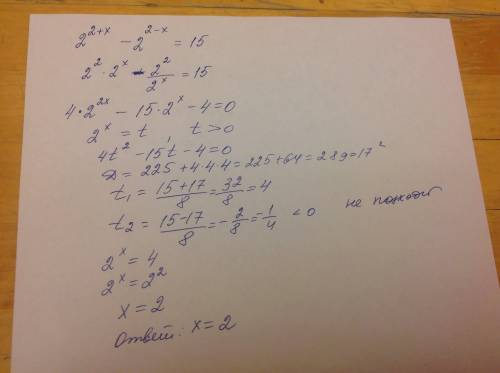 2^{2+x} - 2^{2-x} = 15
2^2 · 2^x - \frac{2^2}{2^x} = 15
4 · 2^{2x} - 15 · 2^x - 4 = 0
2^x = t, t > 0
4t^2 - 15t - 4 = 0
D = 225 + 4·4·4 = 225 + 64 = 289 = 17^2
t_1 = \frac{15+17}{8} = \frac{32}{8} = 4
t_2 = \frac{15-17}{8} = -\frac{2}{8} = -\frac{1}{4} < 0 не
2^x = 4
2^x = 2^2
x = 2
Ответ: x = 2